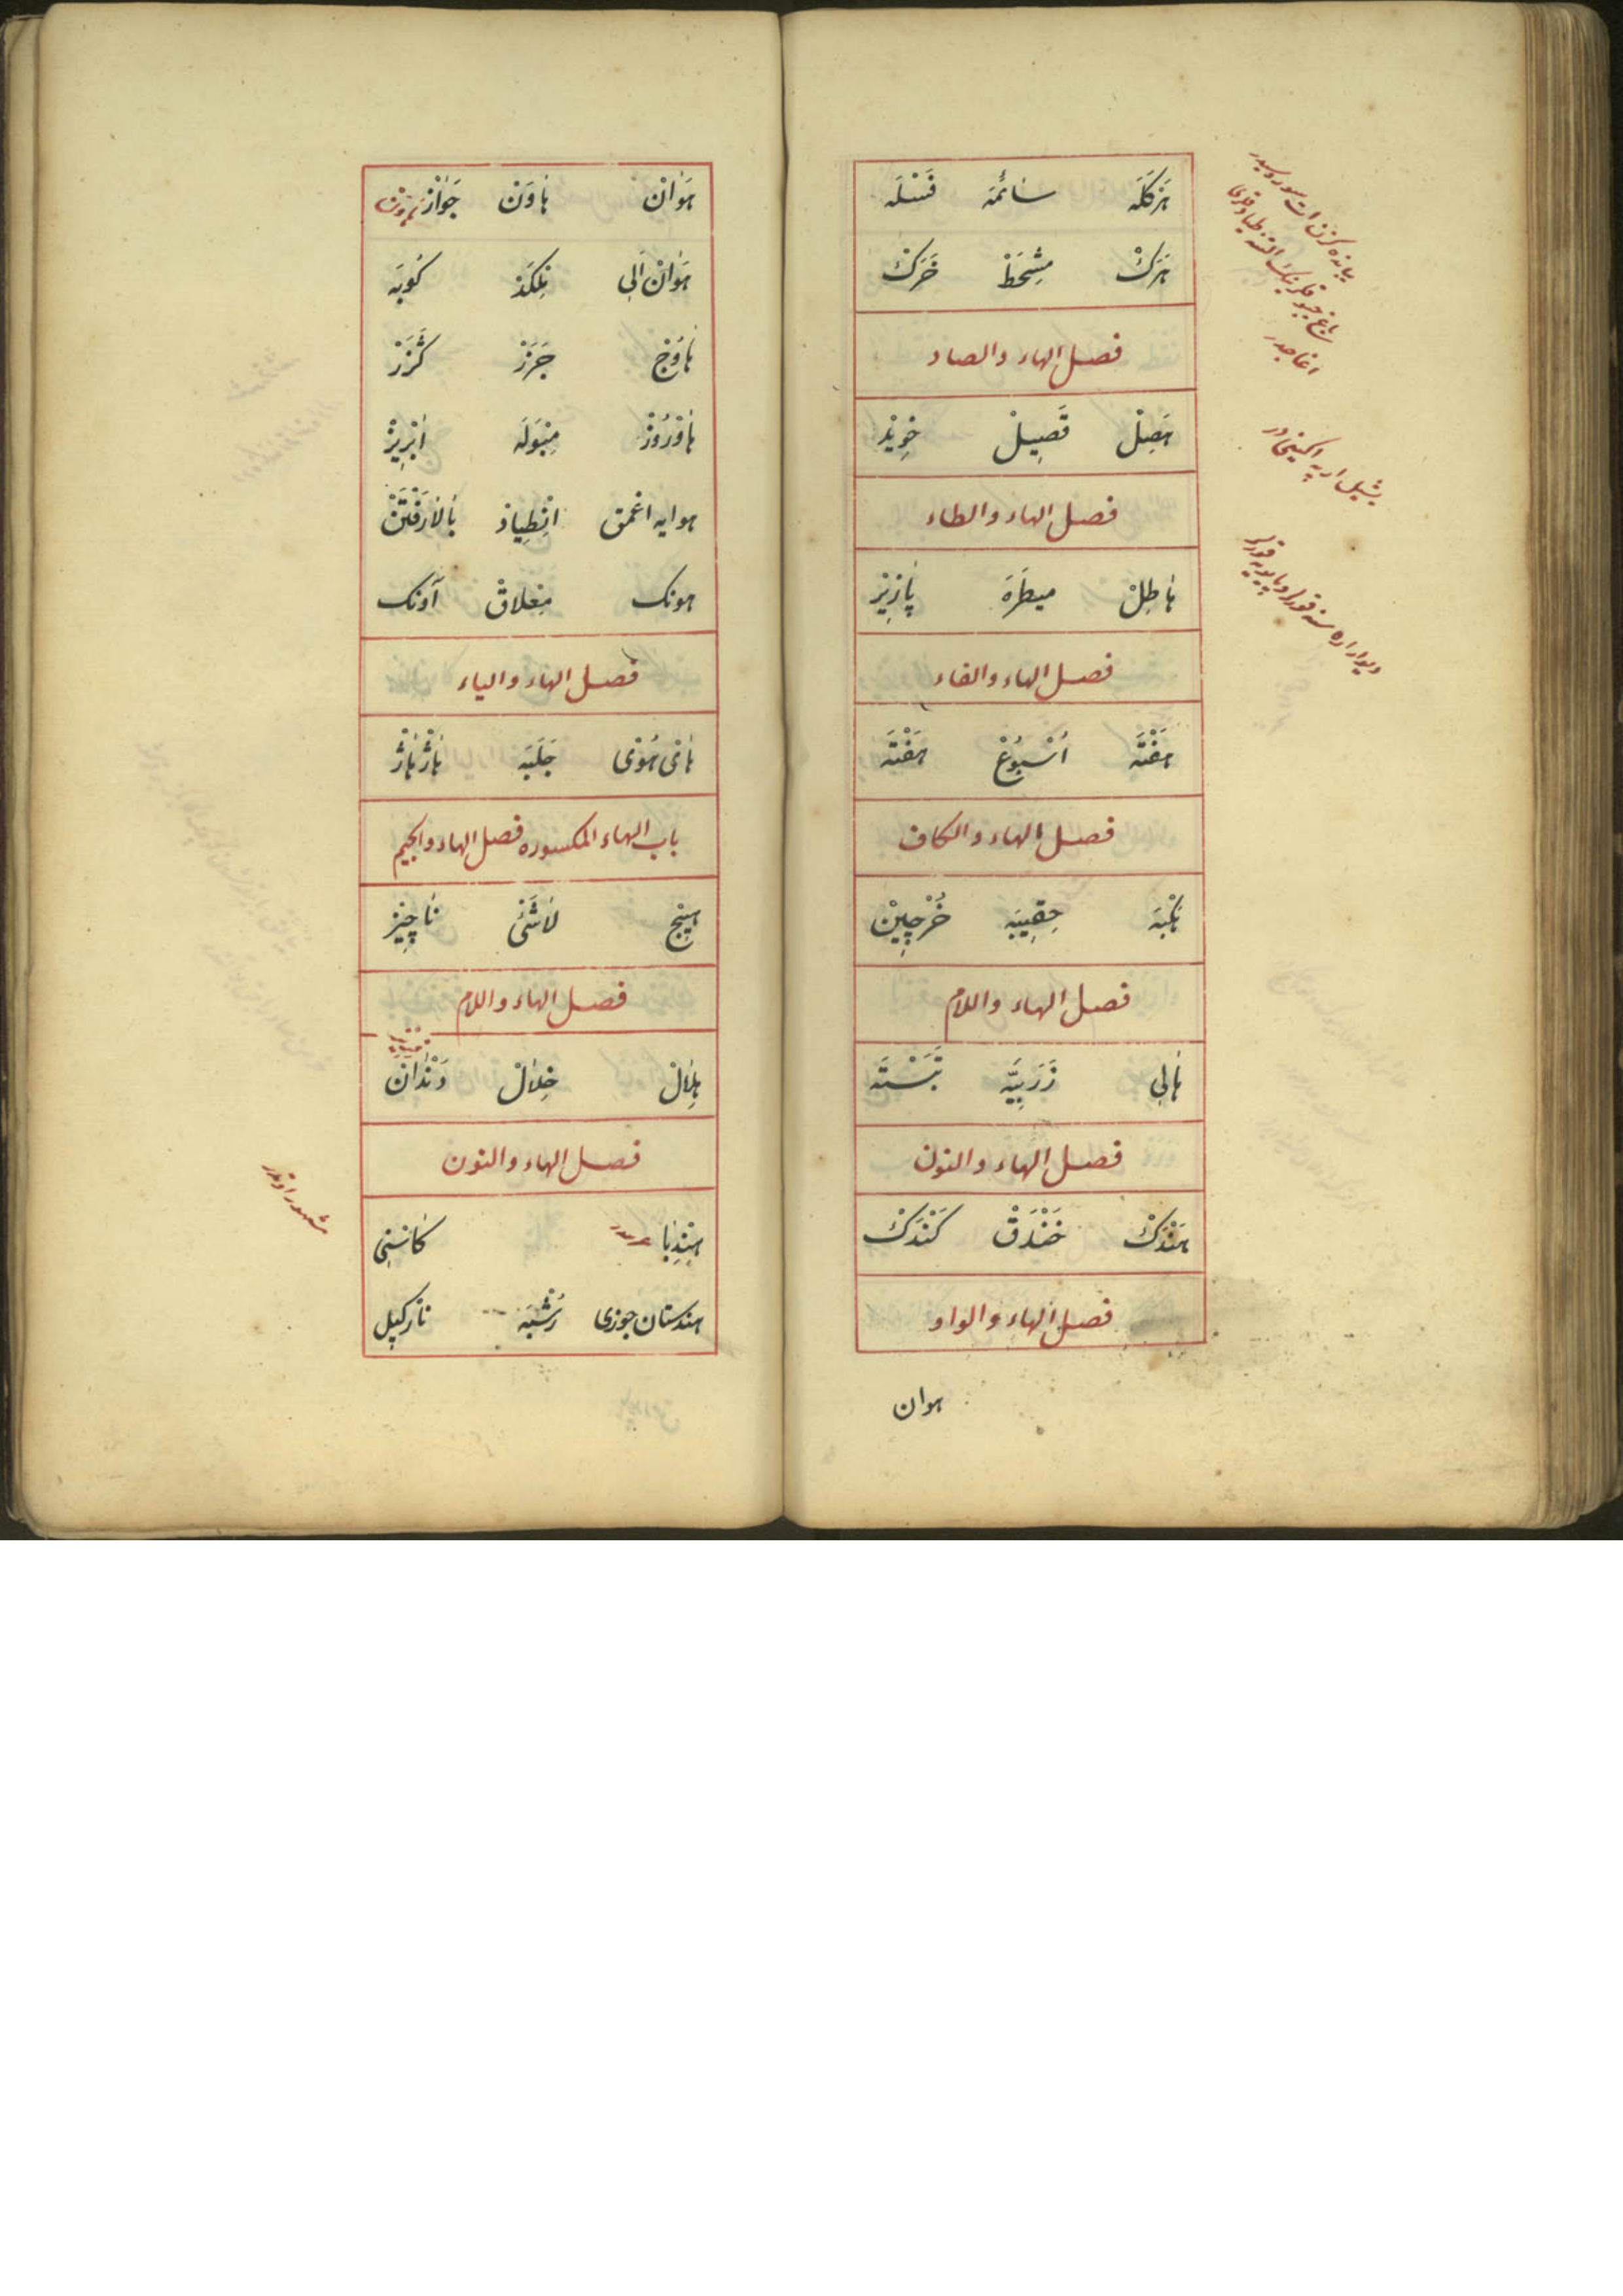 هَرْكَلَه سَائمَه فَسْلَه
هَرَكْ مِشْحَطْ خَرَكْ
فصل الهاء والصاد
هَصِلْ قَصِيلْ خِويِدْ
فصل الهاء والطاء
هَاطِلْ ميطَرَه
فصل الهاء والفاء
هَفْتَه اُسْبُوعْ هَفْتَه
فصل الهاء والكاف
هَكْبَه حِقِيبَه خُرْجِينْ
فصل الهاء واللام
هَالِى زَرَبِيَّه
فصل الهاء والنون
هَنْدَكْ خَنْدَقْ كَنْدَكْ
فصل الهاء والواو
هوان
يشيل اربه اكينى در
هَوَانْ هَاوَنْ جَوَازْ
هَوَانْ اَلِى كُوبَه
هَاوُجْ جَزَرْ كَزَرْ
هَاوْرُوزْ مِبْوَلَه ابْرِيزْ
هوايه اغمق انْطِيادْ بَالَارَفْتَنْ
هونك مِعْلَاقْ آونك
فصل الهاء والياء
هَاىْ هُوْىْ جَلَبَه
باب الهاء المكسوره فصل الهاء والجيم
هِيچ لَاشَئْ نَاچِيز
فصل الهاء واللام
هِلَالْ خِلَالْ دَنْدَانْ
فصل الهاء والنون
هِنْدِبَا كَاسْنِى
هندستان جوزى نَارْكِيل
مشهور اوتدر